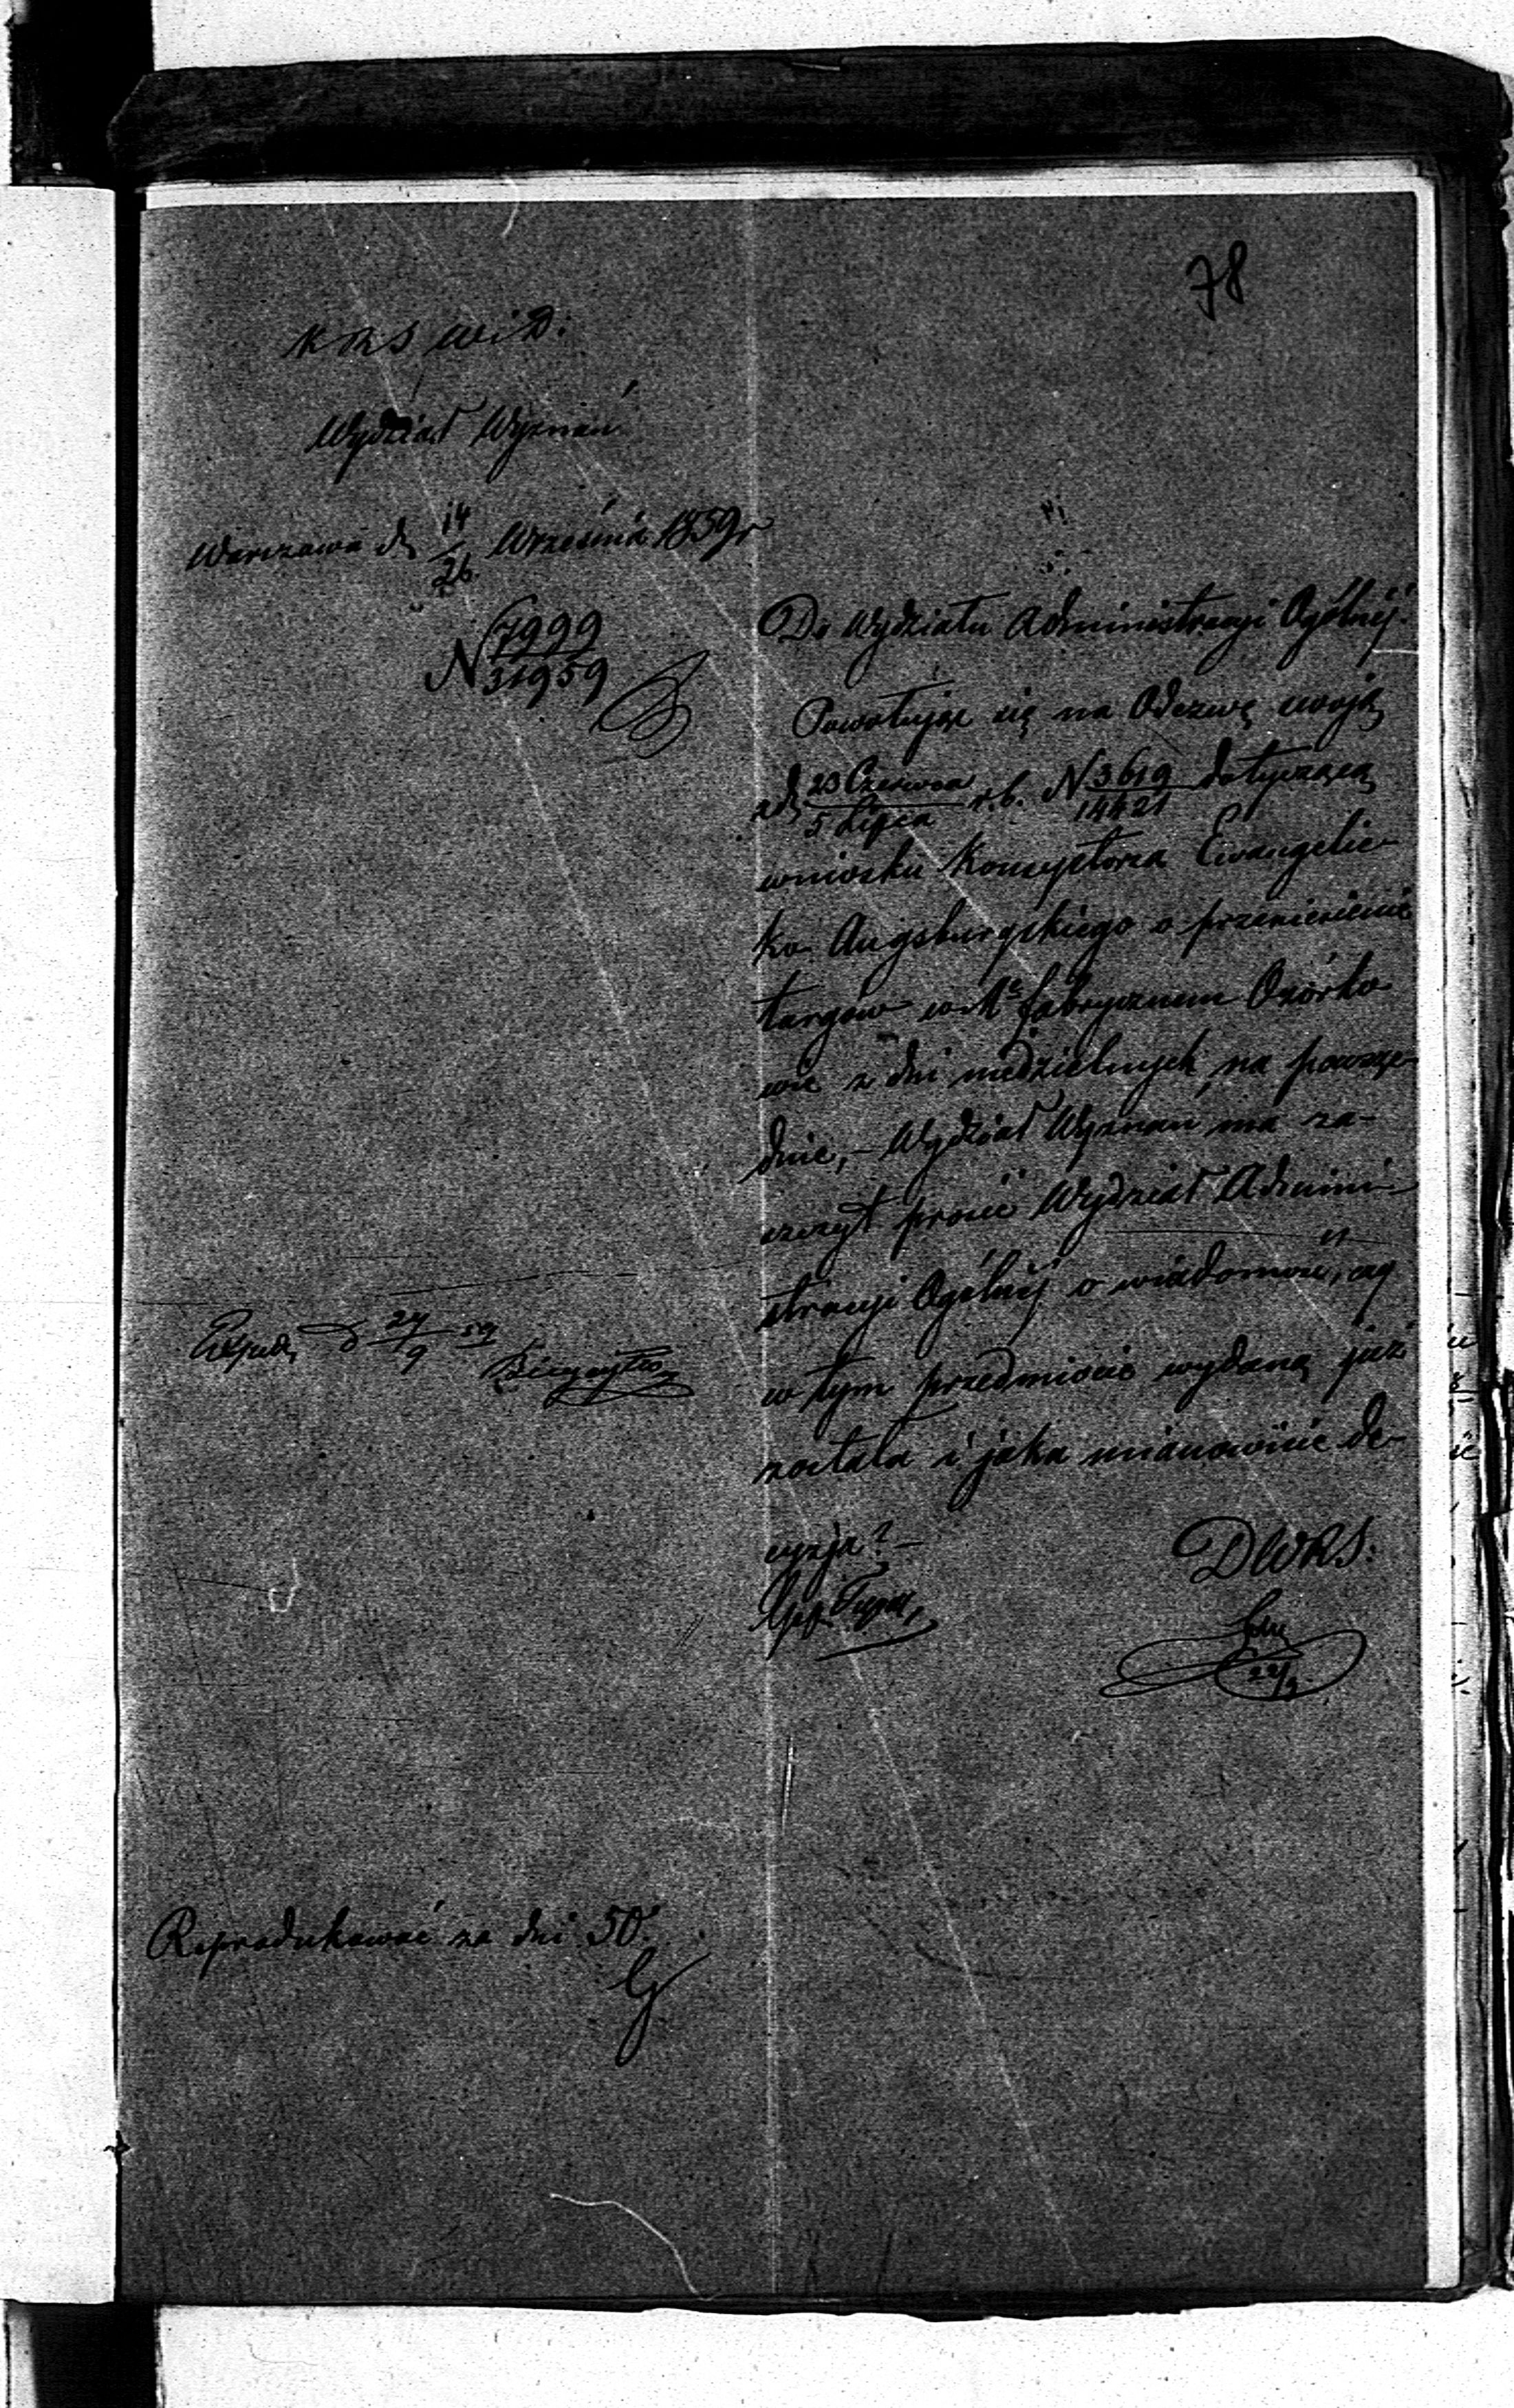 78
K R S W i D:
Wydział Wyznań
Warszawa d. 14/26 Września 1859 r
N 7999/31959
Do Wydziału Administracyi Ogólnéj.
Powołując się na Odezwę swoją
z d. 23 Czerwca/5 Lipca r. b. N 3619/14421 dotyczącą
wniosku Konsystorza Ewangelic-
ko Augsburgskiego o przeniesienie
targów w Mś fabrycznem Ozorko-
wie z dni niedzielnych na powsze-
dnie, – Wydział Wyznań ma za-
szczyt prosić Wydział Admini-
stracyi Ogólnéj o wiadomość, czy
w tym przedmiocie wydaną już
została i jaka mianowicie de-
cyzja? –
DWRS.
22/9
Exped. d 24/9 59
Reprodukować za dni 50.